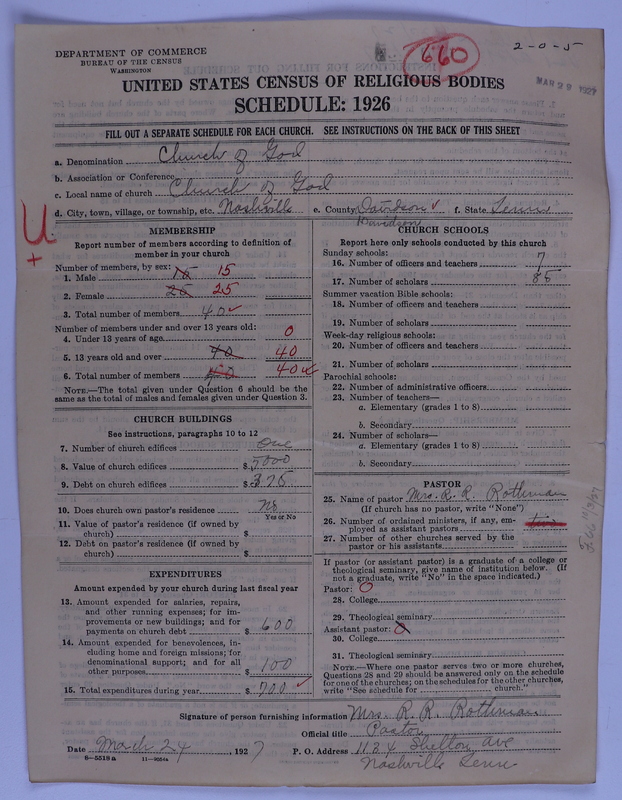 DEPARTMENT OF COMMERCE
BUREAU OF THE CENSUS
WASHINGTON
660
2-0-5
MAR 28 1927
UNITED STATES CENSUS OF RELIGIOUS BODIES
SCHEDULE: 1926
FILL OUT A SEPARATE SCHEDULE FOR EACH CHURCH. SEE INSTRUCTIONS ON THE BACK OF THIS SHEET
a. Denomination Church of God
b. Association or Conference
c. Local name of church Church of God
d. City, town, village, or township, etc. Nashville e. County Davidson ✓ f. State Tenn
Davidson
U
+
MEMBERSHIP
Report number of members according to definition of
member in your church
Number of members, by sex:
1. Male 15 15
2. Female 25 25
3. Total number of members 40 ✓
Number of members under and over 13 years old:
4. Under 13 years of age 0
5. 13 years old and over 40 40
6. Total number of members 40 40
NOTE.—The total given under Question 6 should be the
same as the total of males and females given under Question 3.
CHURCH BUILDINGS
See instructions, paragraphs 10 to 12
7. Number of church edifices one
8. Value of church edifices $ 5000
9. Debt on church edifices $ 375
10. Does church own pastor's residence? No
Yes or No
11. Value of pastor's residence (if owned by
church) $
12. Debt on pastor's residence (if owned by
church) $
EXPENDITURES
Amount expended by your church during last fiscal year
13. Amount expended for salaries, repairs,
and other running expenses; for im-
provements or new buildings; and for
payments on church debt $ 600
14. Amount expended for benevolences, in-
cluding home and foreign missions; for
denominational support; and for all
other purposes $ 100
15. Total expenditures during year $ 700 ✓
CHURCH SCHOOLS
Report here only schools conducted by this church
Sunday schools:
16. Number of officers and teachers 7
17. Number of scholars 85
Summer vacation Bible schools:
18. Number of officers and teachers
19. Number of scholars
Week-day religious schools:
20. Number of officers and teachers
21. Number of scholars
Parochial schools:
22. Number of administrative officers
23. Number of teachers—
a. Elementary (grades 1 to 8)
b. Secondary
24. Number of scholars—
a. Elementary (grades 1 to 8)
b. Secondary
PASTOR
25. Name of pastor Mrs. R. R. Rothman
(If church has no pastor, write "None")
26. Number of ordained ministers, if any, em-
ployed as assistant pastors
27. Number of other churches served by the
pastor or his assistants
If pastor (or assistant pastor) is a graduate of a college or
theological seminary, give name of institution below. (If
not a graduate, write "No" in the space indicated.)
Pastor: O
28. College
29. Theological seminary
Assistant pastor:
30. College
31. Theological seminary
NOTE.—Where one pastor serves two or more churches,
Questions 28 and 29 should be answered only on the schedule
for one of the churches; on the schedules for the other churches,
write "See schedule for church."
Signature of person furnishing information Mrs. R. R. Rothman
Official title Pastor
Date March 24, 1927 P. O. Address 1124 Shelton Ave
Nashville Tenn
8-5518a 11-9054a